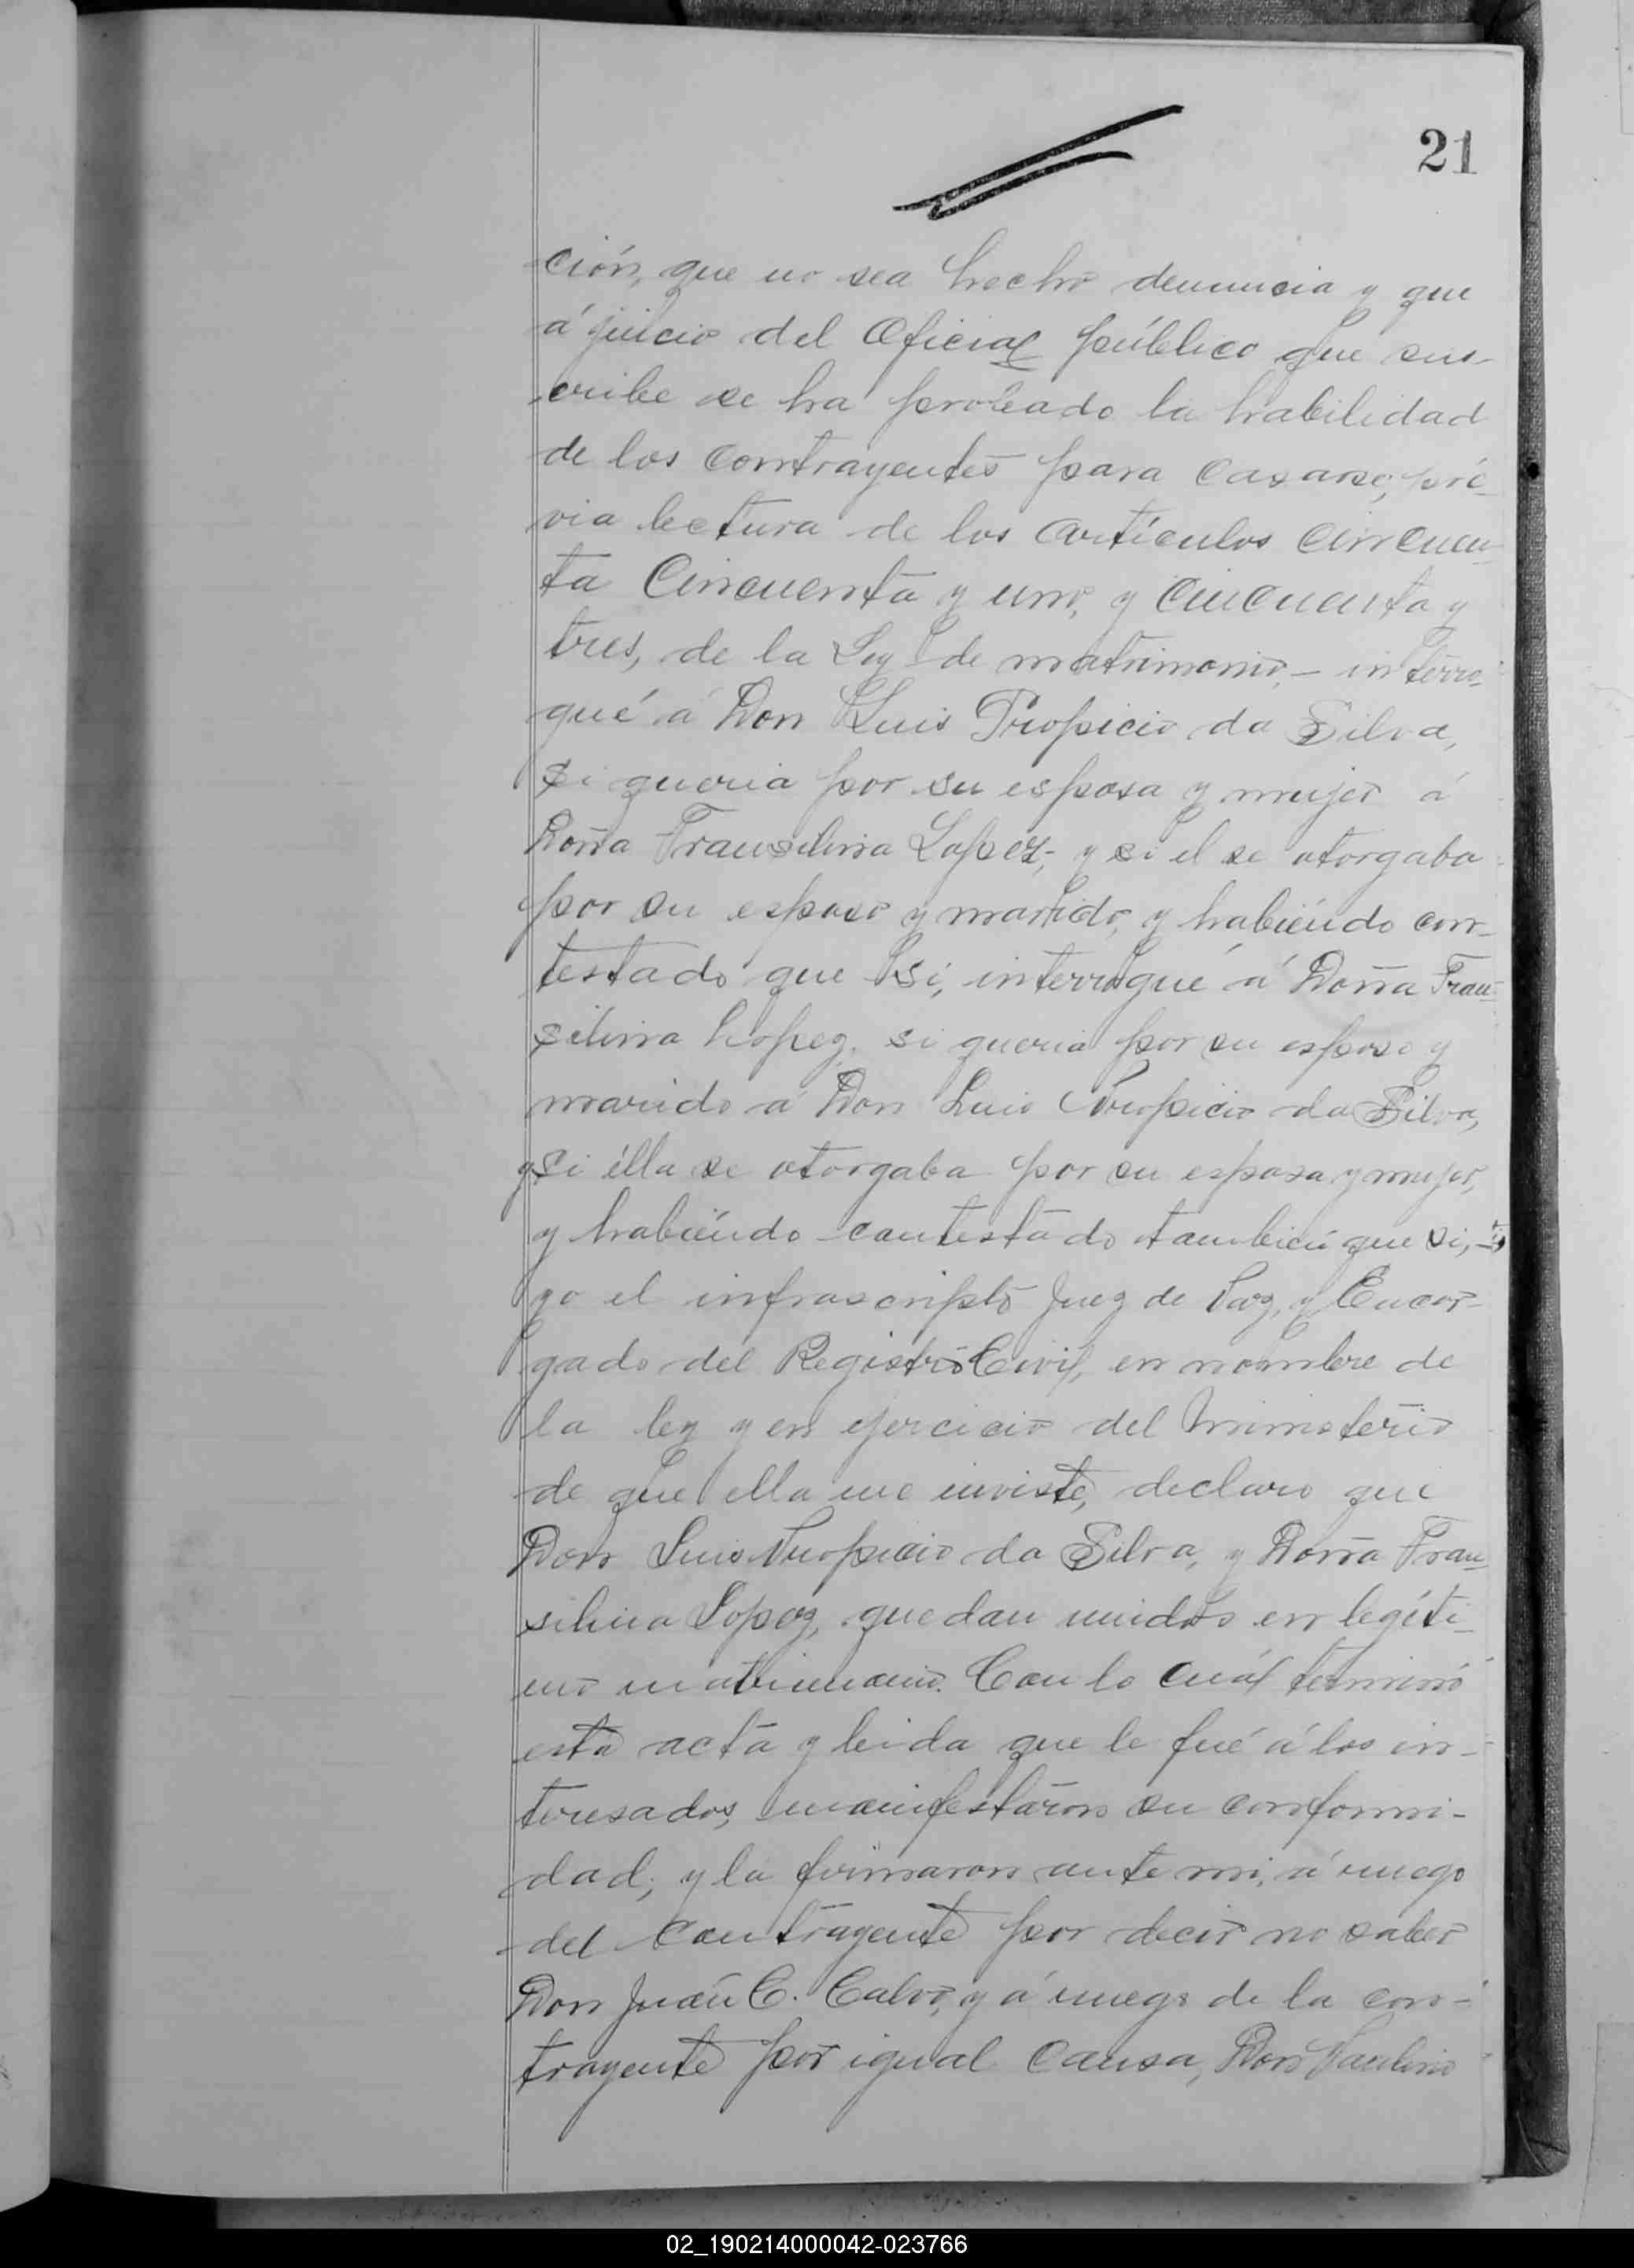 21
ción, que no sea hecho denuncia y que
á juicio del Oficial público que sus-
cribe se ha probado la habilidad
de los contrayentes para casarse, pré-
via lectura de los artículos cincuen-
ta Cincuenta y uno, y cincuenta y
tres, de la Ley de matrimonio, - interro-
gué á Don Luis Propicio da Silva,
si queria por su esposa y mujer á
Doña Fransilina Lopez, y si el se otorgaba
por su esposo y marido, y habiéndo con-
testado que si, interrogué á Doña Fran-
silina Lopez, si queria por su esposo y
marido á Don Luis Propicio da Silva,
y si élla se otorgaba por su esposa y mujer,
y habiéndo contestado tambien que si, -
yo el infrascripto Juez de Paz, y Encar-
gado del Registro Civil, en nombre de
la ley y en ejercicio del Ministerio
de que ella me inviste, declaro que
Don Luis Propicio da Silva, y Doña Fran-
silina Lopez, quedan unidos en legíti-
mo matrimonio. Con lo cuál terminó
esta acta y leida que le fué á los in-
teresados, manifestaron su conformi-
dad, y la firmaron ante mi, á ruego
del contrayente por decir no saber
Don Juan C. Calvo, y á ruego de la con-
trayente por igual causa, Don Paulino
02_190214000042-023766